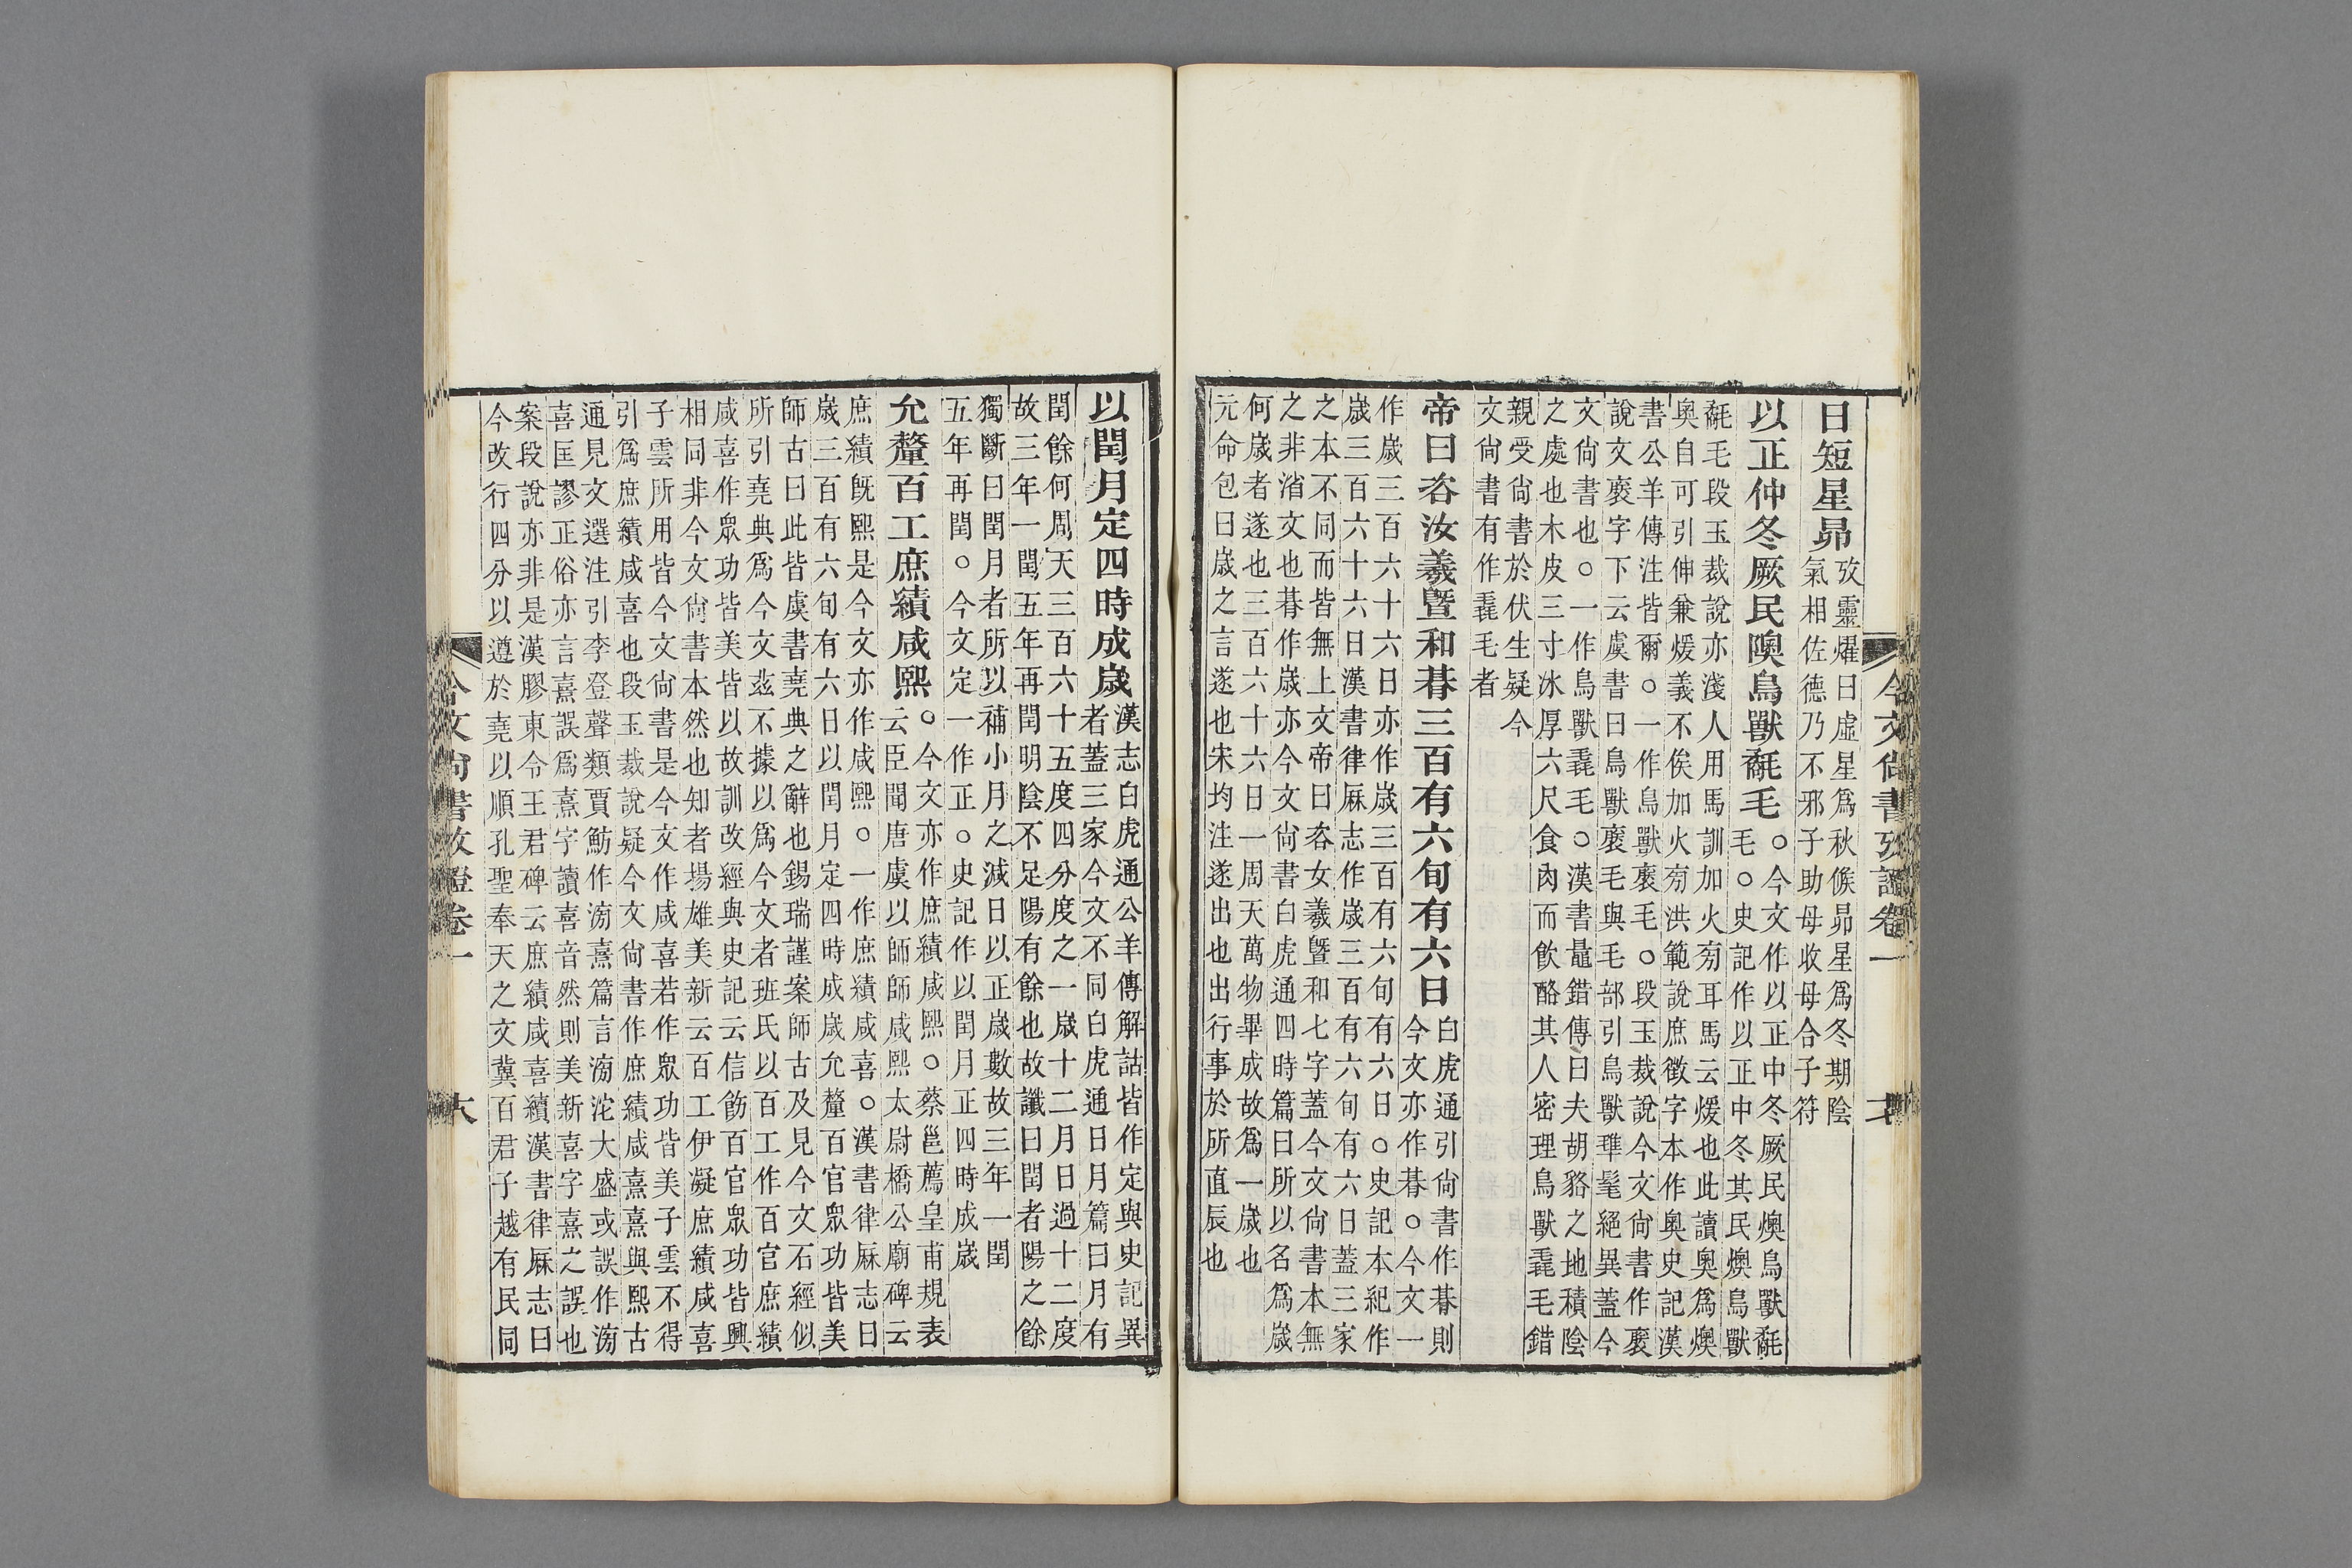 今文尚書攷證卷一
日短星昴
攷靈燿曰虛星爲秋候昴星爲冬期陰
氣相佐德乃不邪子助母收母合子符
以正仲冬厥民隩鳥獸氄毛
○今文作以正中冬厥民燠鳥獸氄
毛○史記作以正中冬其民燠鳥獸
氄毛段玉裁說亦淺人用馬訓加火旁耳馬云煖也此讀奧爲燠
奧自可引伸兼煖義不俟加火旁洪範說庶徵字本作奧史記漢
書公羊傳注皆爾○一作鳥獸襃毛○段玉裁說今文尚書作襃
說文襃字下云虞書曰鳥獸襃毛與毛部引鳥獸㲝髦絕異蓋今
文尚書也○一作鳥獸毳毛○漢書鼂錯傳曰夫胡貉之地積陰
之處也木皮三寸冰厚六尺食肉而飲酪其人密理鳥獸毳毛錯
親受尚書於伏生疑今
文尚書有作毳毛者
帝曰咨汝羲曁和朞三百有六旬有六日
白虎通引尚書作朞則
今文亦作朞○今文一
作歲三百六十六日亦作歲三百有六旬有六日○史記本紀作
歲三百六十六日漢書律厤志作歲三百有六旬有六日蓋三家
之本不同而皆無上文帝曰咨女羲曁和七字蓋今文尚書本無
之非渻文也朞作歲亦今文尚書白虎通四時篇曰所以名爲歲
何歲者遂也三百六十六日一周天萬物畢成故爲一歲也
元命包曰歲之言遂也宋均注遂出也出行事於所直辰也
以閏月定四時成歲
漢志白虎通公羊傳解詁皆作定與史記異
者蓋三家今文不同白虎通日月篇曰月有
閏餘何周天三百六十五度四分度之一歲十二月日過十二度
故三年一閏五年再閏明陰不足陽有餘也故讖曰閏者陽之餘
獨斷曰閏月者所以補小月之減日以正歲數故三年一閏
五年再閏○今文定一作正○史記作以閏月正四時成歲
允釐百工庶績咸熙
○今文亦作庶績咸熙○蔡邕薦皇甫規表
云臣聞唐虞以師師咸熙太尉橋公廟碑云
庶績旣熙是今文亦作咸熙○一作庶績咸喜○漢書律厤志曰
歲三百有六旬有六日以閏月定四時成歲允釐百官眾功皆美
師古曰此皆虞書堯典之辭也錫瑞謹案師古及見今文石經似
所引堯典爲今文茲不據以爲今文者班氏以百工作百官庶績
咸喜作眾功皆美皆以故訓改經與史記云信飭百官眾功皆興
相同非今文尚書本然也知者揚雄美新云百工伊凝庶績咸喜
子雲所用皆今文尚書是今文作咸喜若作眾功皆美子雲不得
引爲庶績咸喜也段玉裁說疑今文尚書作庶績咸熹熹與熙古
通見文選注引李登聲類賈魴作滂熹篇言滂沱大盛或誤作滂
喜匡謬正俗亦言熹誤爲熹字讀喜音然則美新喜字熹之誤也
案段說亦非是漢膠東令王君碑云庶績咸喜續漢書律厤志曰
今改行四分以遵於堯以順孔聖奉天之文冀百君子越有民同
今文尚書攷證卷一
六